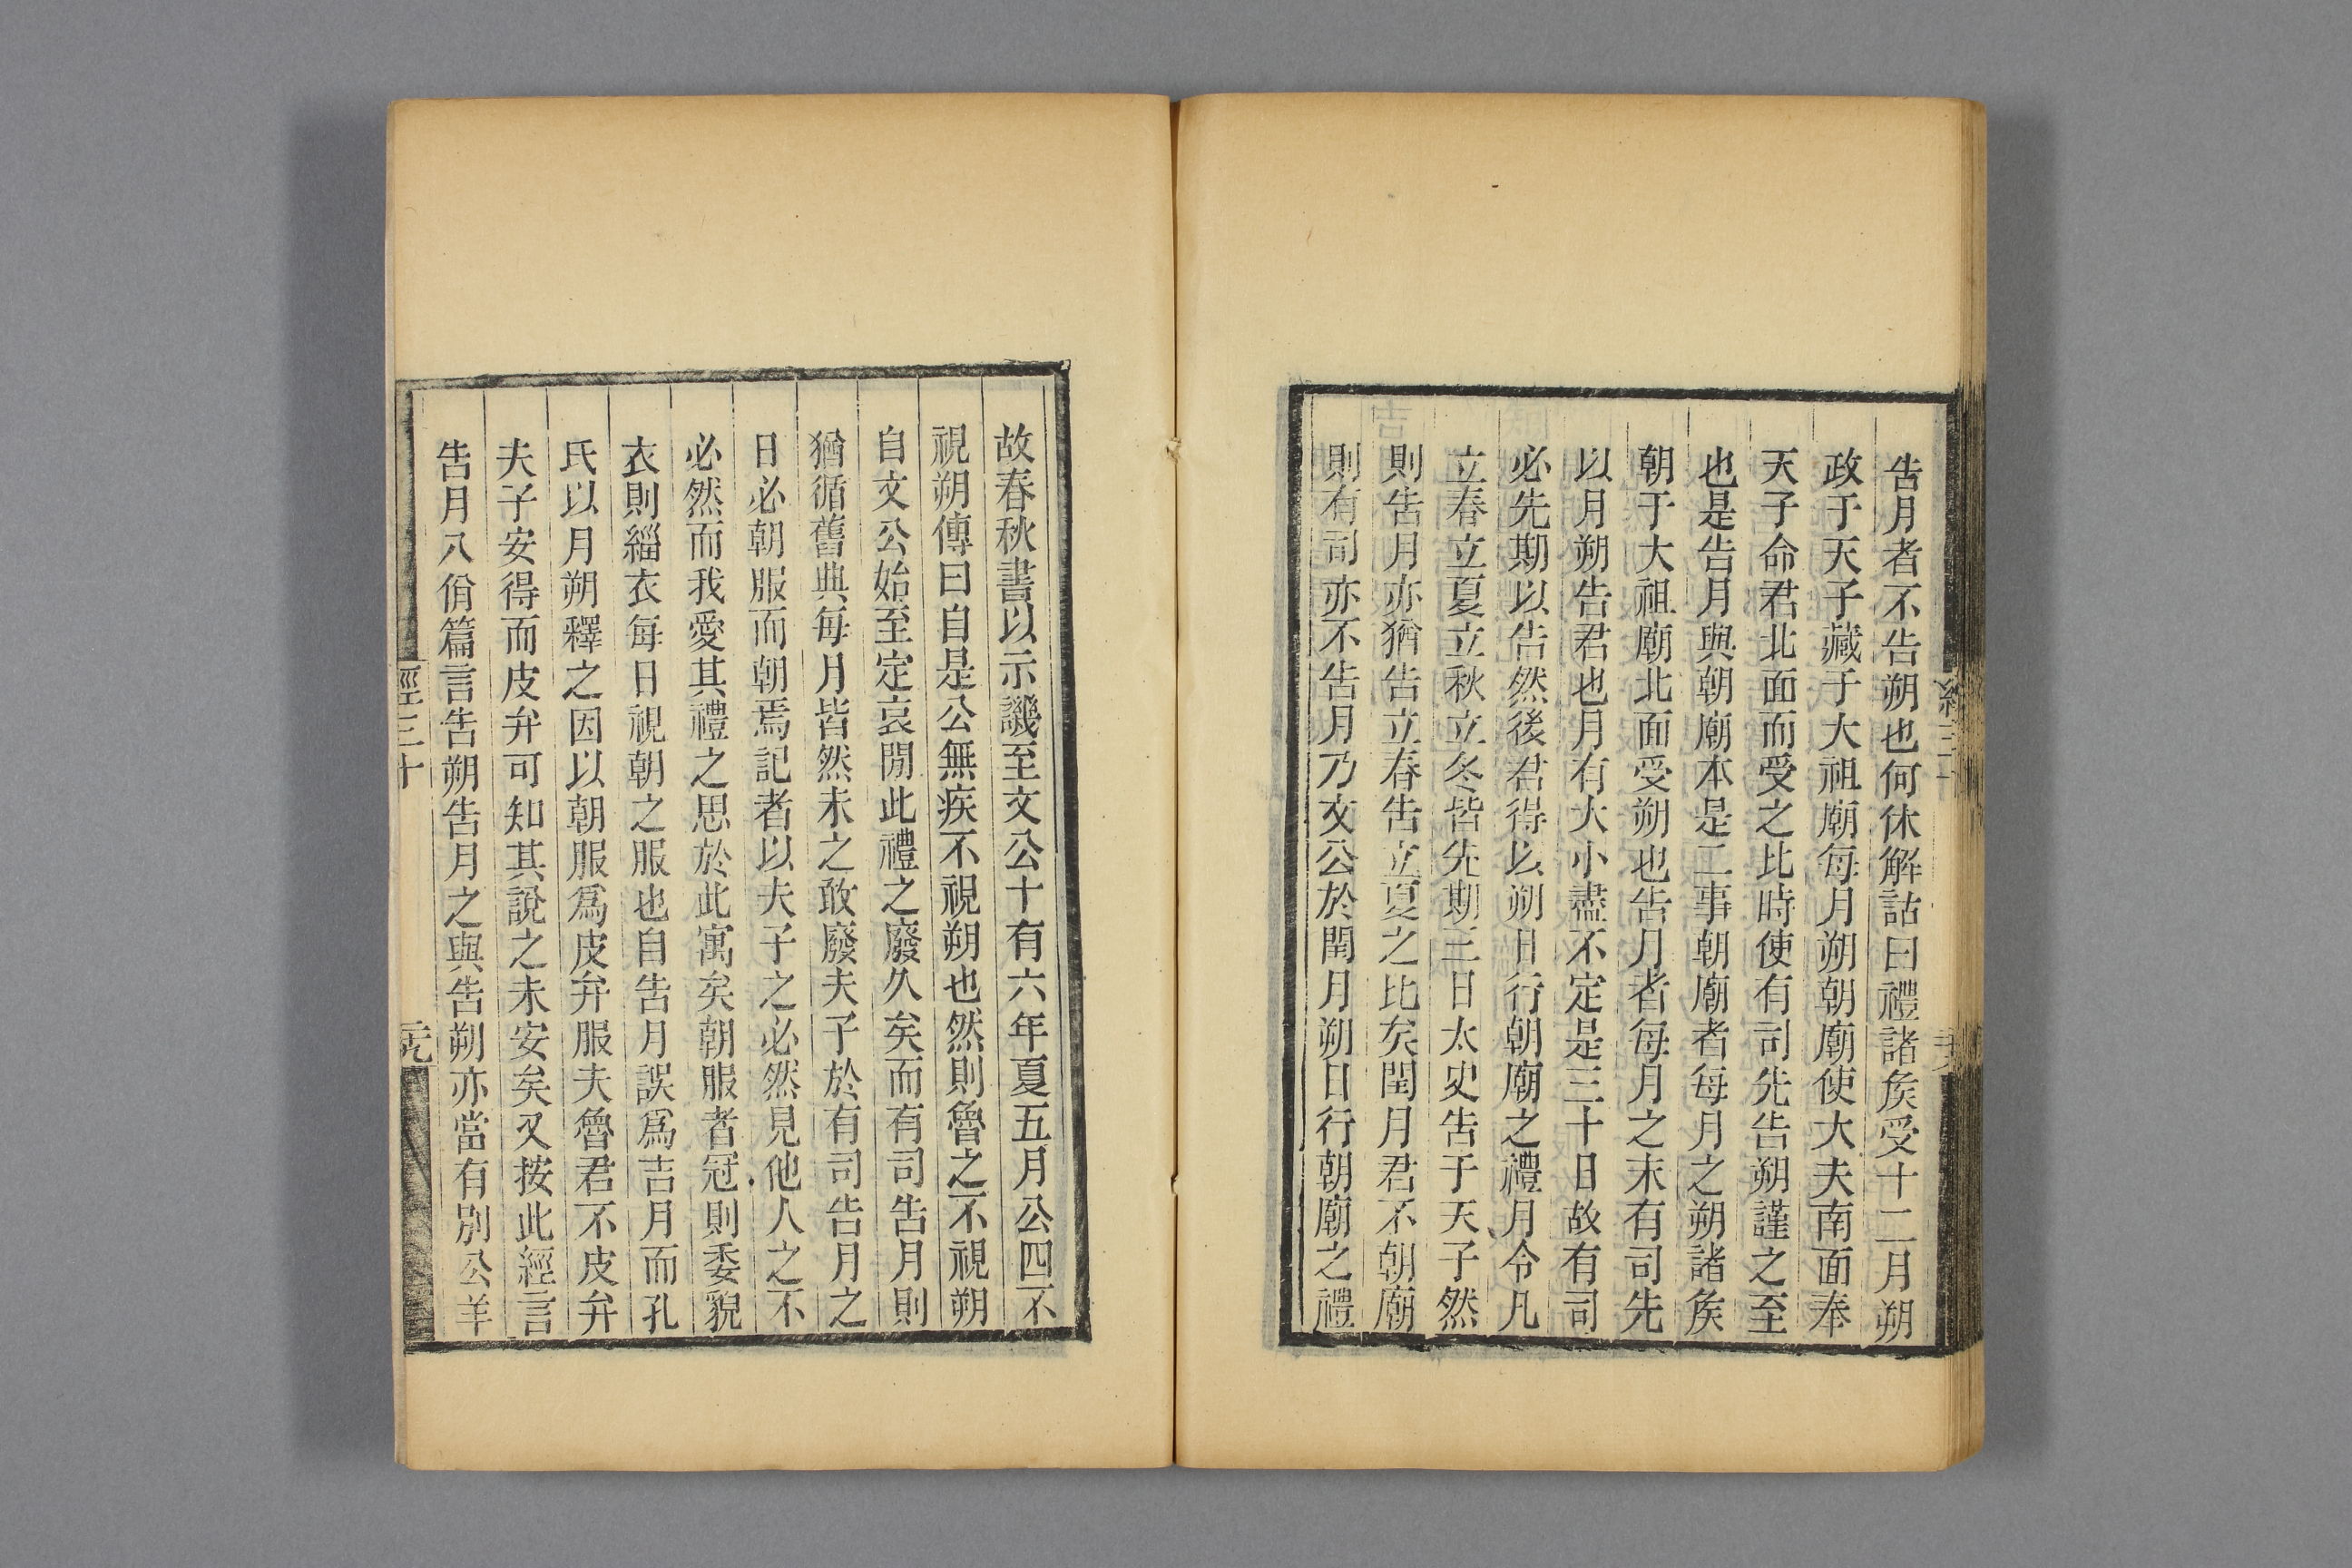 告月者不告朔也何休解詁曰禮諸矦受十二月朔
政于天子藏于大祖廟每月朔朝廟使大夫南面奉
天子命君北面而受之比時使有司先告朔謹之至
也是告月與朝廟本是二事朝廟者每月之朔諸矦
朝于大祖廟北面受朔也告月者每月之末有司先
以月朔告君也月有大小盡不定是三十日故有司
必先期以告然後君得以朔日行朝廟之禮月令凡
立春立夏立秋立冬皆先期三日太史告于天子然
則告月亦猶告立春告立夏之比矣閏月君不朝廟
則有司亦不告月乃文公於閏月朔日行朝廟之禮
故春秋書以示譏至文公十有六年夏五月公四不
視朔傳曰自是公無疾不視朔也然則魯之不視朔
自文公始至定哀閒此禮之廢久矣而有司告月則
猶循舊典每月皆然未之敢廢夫子於有司告月之
日必朝服而朝焉記者以夫子之必然見他人之不
必然而我愛其禮之思於此寓矣朝服者冠則委貌
衣則緇衣每日視朝之服也自告月誤爲吉月而孔
氏以月朔釋之因以朝服爲皮弁服夫魯君不皮弁
夫子安得而皮弁可知其說之未安矣又按此經言
告月八佾篇言告朔告月之與告朔亦當有別公羊
經三十